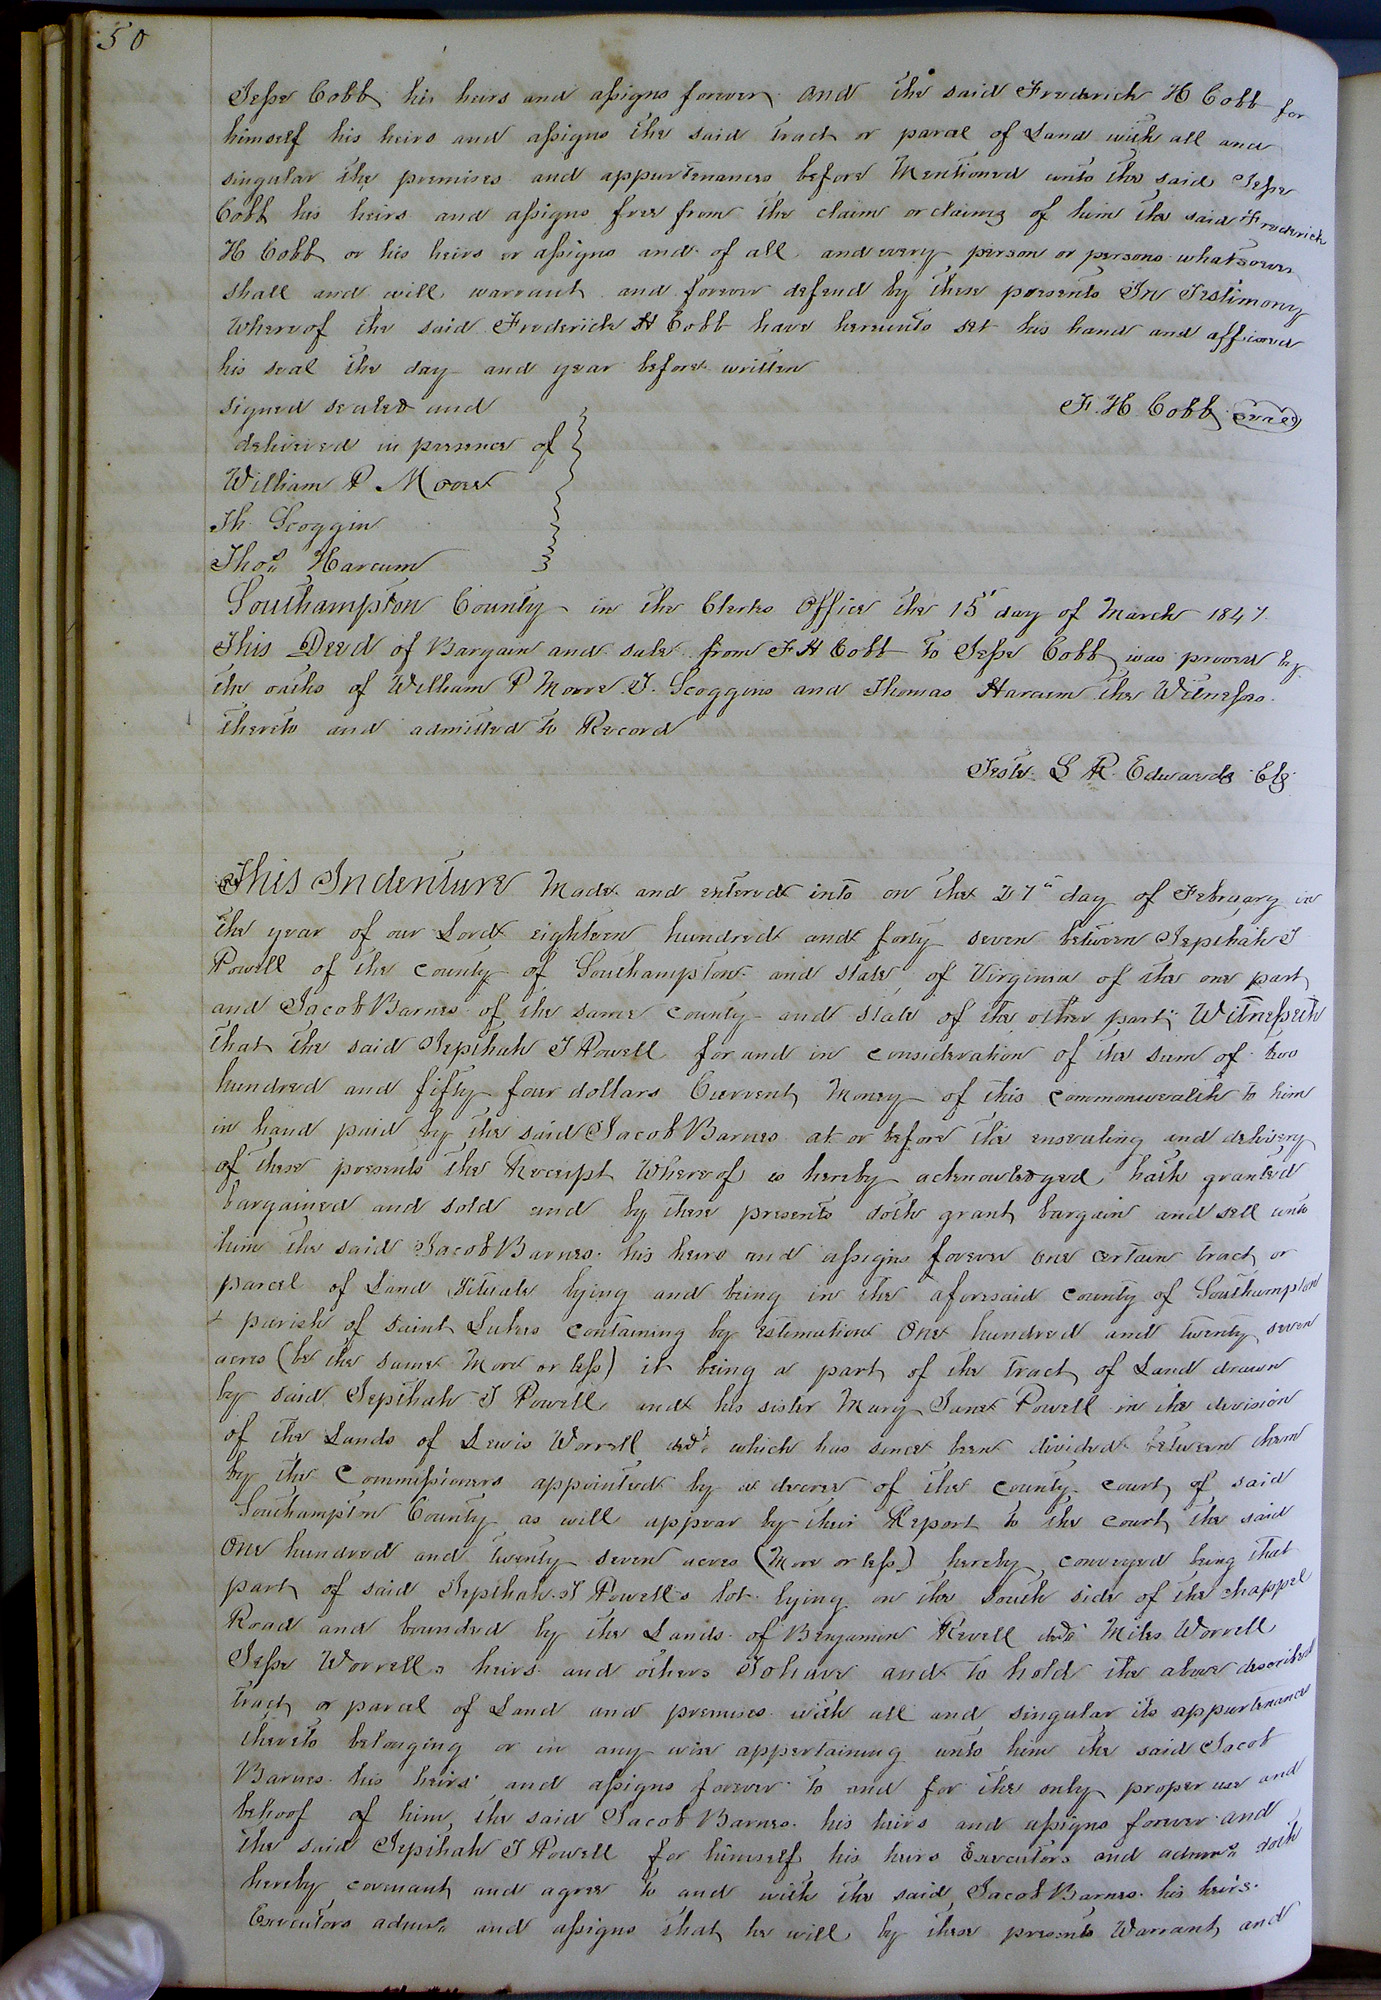 50
Jesse Cobb his heirs and assigns forever and the said Frederick H Cobb for
himself his heirs and assigns the said tract or parcel of Land with all and
singular the premises and appurtenances before Mentioned unto the said Jesse
Cobb his heirs and assigns free from the claim or claims of him the said Frederick
H Cobb or his heirs or assigns and of all and every person or persons whatsoever
shall and will warrant and forever defend by these presents In Testimony
Whereof the said Frederick H Cobb have hereunto set his hand and affixed
his seal the day and year before written
F. H. Cobb seal
signed sealed and
delivered in presence of
William P Moore
Th Scoggin
Thos Harcum
Southampton County in the Clerks Office the 15 day of March 1847.
This Deed of Bargain and sale from F H Cobb to Jesse Cobb was proved by
the oaths of William P Moore T. Scoggins and Thomas Harcum the Witnesses
thereto and admitted to Record
Teste L R Edwards Clk
This Indenture Made and entered into on the 27th day of February in
the year of our Lord eighteen hundred and forty seven between Jepthah T
Powell of the County of Southampton and state of Virginia of the one part
and Jacob Barnes of the same County and State of the other part Witnesseth
that the said Jepthah T Powell for and in consideration of the sum of two
hundred and fifty four dollars Current Money of this commonwealth to him
in hand paid by the said Jacob Barnes at or before the ensealing and delivery
of these presents the Receipt Whereof is hereby acknowledged hath granted
bargained and sold and by these presents doth grant bargain and sell unto
him the said Jacob Barnes his heirs and assigns forever one certain tract or
parcel of Land situate lying and being in the aforesaid County of Southampton
& parish of Saint Lukes containing by Estimation One hundred and twenty seven
acres (be the same More or less) it being a part of the tract of Land drawn
by said Jepthah T Powell and his sister Mary Jane Powell in the division
of the Lands of Lewis Worrell decd which has since been divided between them
by the Commissioners appointed by a decree of the county court of said
Southampton County as will appear by their Report to the court the said
One hundred and twenty seven acres (More or less) hereby conveyed being that
part of said Jepthah T Powells lot lying on the South side of the chappel
Road and bounded by the Lands of Benjamin Revell decd Miles Worrell
Jesse Worrells heirs and others To have and to hold the above described
tract or parcel of Land and premises with all and singular its appurtenances
thereto belonging or in any wise appertaining unto him the said Jacob
Barnes his heirs and assigns forever to and for the only proper use and
behoof of him, the said Jacob Barnes his heirs and assigns forever and
the said Jepthah T Powell for himself his heirs Executors and admrs doth
hereby covenant and agree to and with the said Jacob Barnes his heirs
Executors admrs and assigns that he will by these presents Warrant and